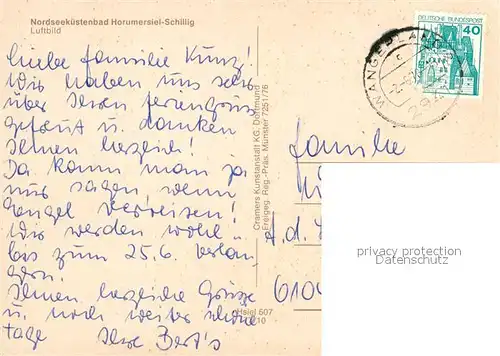 Nordseeküstenbad Horumersiel-Schillig
Luftbild
Liebe Familie Kunz!
Wir haben uns sehr
über Ihren Feriengruss
gefreut u. danken
Ihnen herzlich!
Da kann man ja
nur sagen wenn
Engel verreisen!
Wir werden wohl
bis zum 25.6. verlän
gern.
Ihnen herzliche Grüsse
u. noch weiter schöne
Tage Ihre
Cramers Kunstanstalt KG, Dortmund
Freigeg. Reg.-Präs. Münster 7251/76
DEUTSCHE BUNDESPOST
40
WANGERLAND
Familie
a.d.
6104
privacy protection
Datenschutz
507